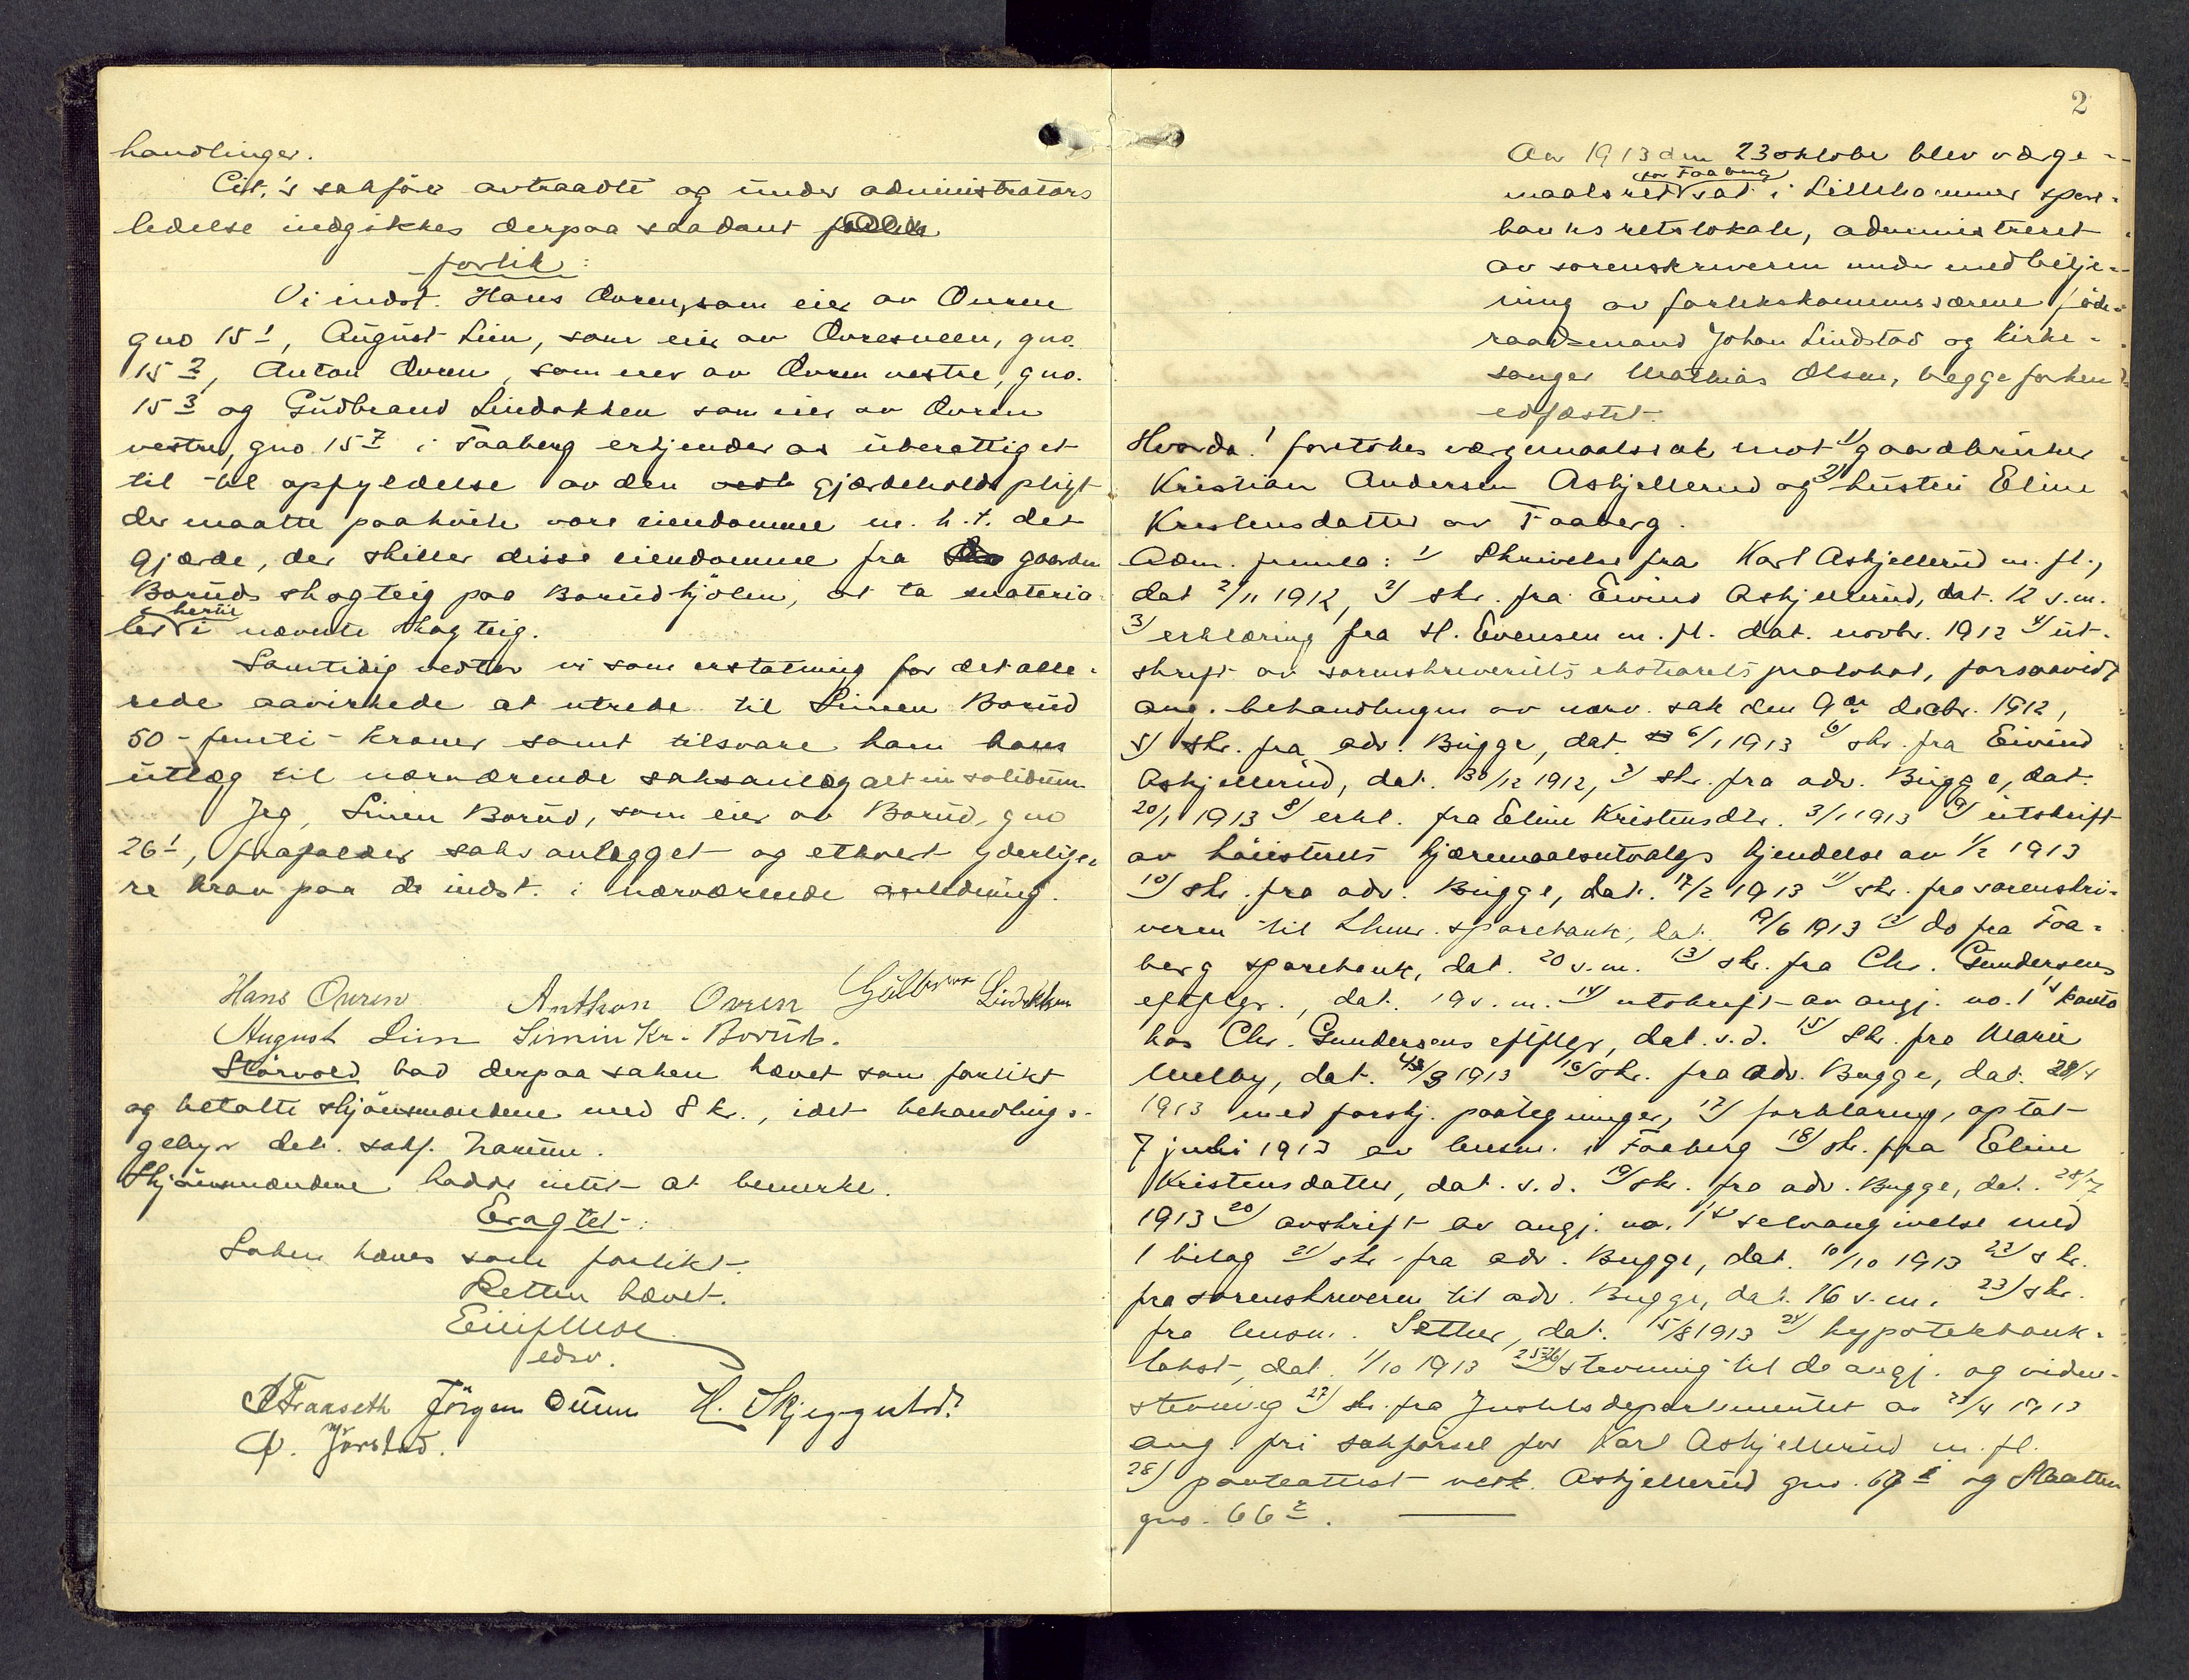 handlinger.
Cit.'s sakförer avtraadte og under administrators
ledelse indgikkes derpaa saadant
forlik:
Vi indst. Hans Ovren, som eier av Ovren
gno 15¹, August Lien, som eier av Ovresveen, gno.
15², Anton Ovren, som eier av Ovren vestre, gno.
15³ og Gudbrand Lindokken som eier av Ovren
vestre, gno. 15⁷ i Faaberg erkjender os uberettiget
til til opfyldelse av den gjærdeholdspligt
der maatte paahvile vore eiendomme m. h. t. det
gjærde, der skiller disse eiendomme fra gaarden
Boruds skogteig paa Borudkjölen, at ta materia-
ler hertil i nævnte skogteig.
Samtidig vedtar vi som erstatning for det alle-
rede aavirkede at utrede til Simen Borud
50 - femti - kroner samt tilsvare ham hans
utlæg til nærværende saksanlæg alt in solidum.
Jeg, Simen Borud, som eier av Borud, gno
26¹, frafalder saksanlægget og ethvert yderlige-
re krav paa de indst. i nærværende anledning.
Hans Ovren Anthon Ovren Gudbrand Lindokken
August Lien Simin Kr. Borud.
Storvold bad derpaa saken hævet som forlikt
og betalte skjönsmændene med 8 kr., idet behandlings-
gebyr
Skjönsmændene hadde intet at bemerke.
Eragtet:
Saken hæves som forlikt.
Retten hævet.
edsv.
Jörgen H.
Jörstad.
2
Aar 1913 den 23 oktober blev værge-
maalsret for Faaberg sat i Lillehammer spare-
banks retslokale, administreret
av sorenskriveren under medbetje-
ning av forlikskommissærene föde-
raadsmand Johan Lindstad og kirke-
sanger Mathias Olsen, begge forhen
edfæstet.
Hvorda! foretokes værgemaalssak mot 1) gaardbruker
Kristian Andersen Askjellerud og 2) hustru Eline
Kristensdatter av Faaberg.
Adm. freml.: 1) Skrivelse fra Karl Askjellerud m. fl.,
dat 2/11 1912, 2) skr. fra Eivind Askjellerud, dat. 12 s.m.
3) erklæring fra H. Evensen m. fl. dat. novbr. 1912 4) ut-
skrift av sorenskriveriets ekstraretsprotokol, forsaavidt
ang. behandlingen av nærv. sak den 9de decbr. 1912,
5) skr. fra adv. Bugge, dat. 6/1 1913 6) skr. fra Eivind
Askjellerud, dat. 30/12 1912, 7) skr. fra adv. Bugge, dat.
20/1 1913 8) erkl. fra Eline Kristensdtr. 3/1 1913 9) utskrift
av höiesterets kjæremaalsutvalgs kjendelse av 1/2 1913
10) skr. fra adv. Bugge, dat. 17/2 1913 11) skr. fra sorenskri-
veren til Lhmr. sparebank, dat. 19/6 1913 12) do fra Faa-
berg sparebank, dat. 20 s.m. 13) skr. fra Chr. Gundersens
eftflgr., dat. 19 s. m. 14) utskrift av angj. no. 1's konto
hos Chr. Gundersens eftflgr, dat. s.d. 15) Skr. fra Marie
Melby, dat. 1913 16) skr. fra adv. Bugge, dat. 28/4
1913 med forskj. paategninger, 17) forklaring, optat
7 juli 1913 av lensm. i Faaberg 18) skr. fra Eline
Kristensdatter, dat. s.d. 19) skr. fra adv. Bugge, dat. 28/7
1913 20) avskrift av angj. no. 1's selvangivelse med
1 bilag 21) skr. fra adv. Bugge, dat. 10/10 1913 22) skr.
fra sorenskriveren til adv. Bugge, dat. 16 s.m. 23) skr.
fra lensm. Sether, dat. 15/8 1913 24) hypotekbank-
takst, dat. 1/10 1913 25-26) stevning til de angj. og vidne-
stevning 27) skr. fra Justitsdepartementet av 23/4 1913
ang. fri sakförsel for Karl Askjellerud m. fl.
28) panteattest vedk. Askjellerud gno. og Slaatten
gno. 66².